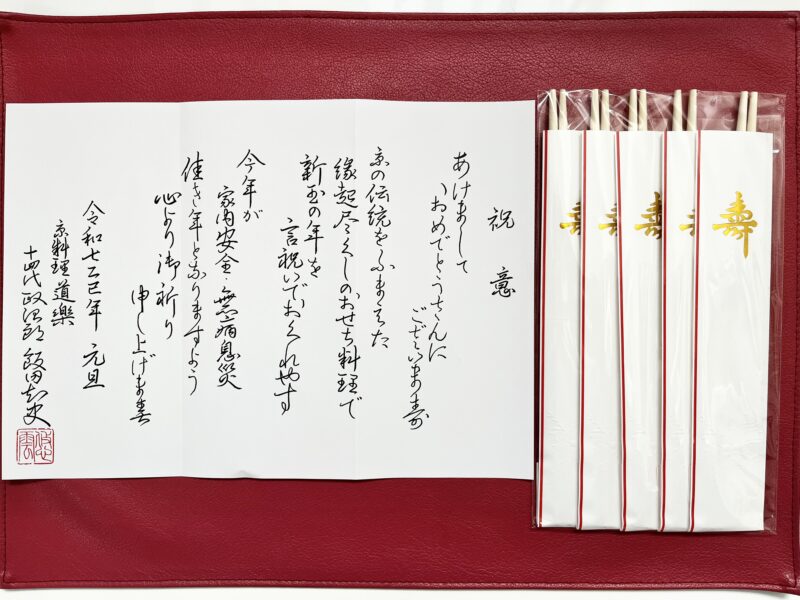 祝 意
あけまして
おめでとうさんに
ございま寿
京の伝統をふまえた
縁起尽くしのおせち料理で
新玉の年を
言祝いでおくれやす
今年が
家内安全・無病息災
佳き年となりますよう
心より御祈り
申し上げます
令和七乙巳年 元旦
京料理 道樂
十四代政治郎 飯田知史
寿
寿
寿
寿
寿